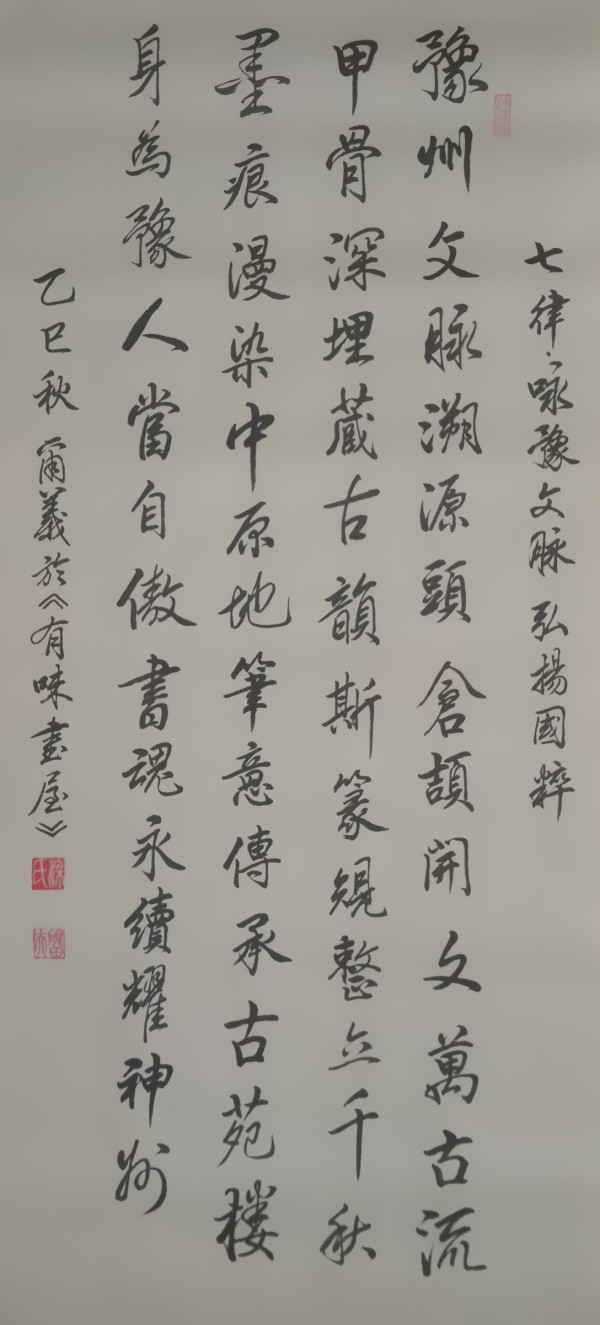 七律：咏豫文脉 弘揚國粹
豫州文脉溯源頭倉頡開文萬古流
甲骨深埋蔵古韻斯篆規整立千秋
墨痕漫染中原地筆意傳承古苑楼
身為豫人當自傲書魂永續耀神州
乙巳秋 爾義於《有味書屋》